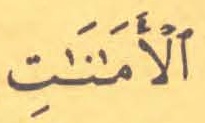 ٱلْأَمَٰنَٰتِ